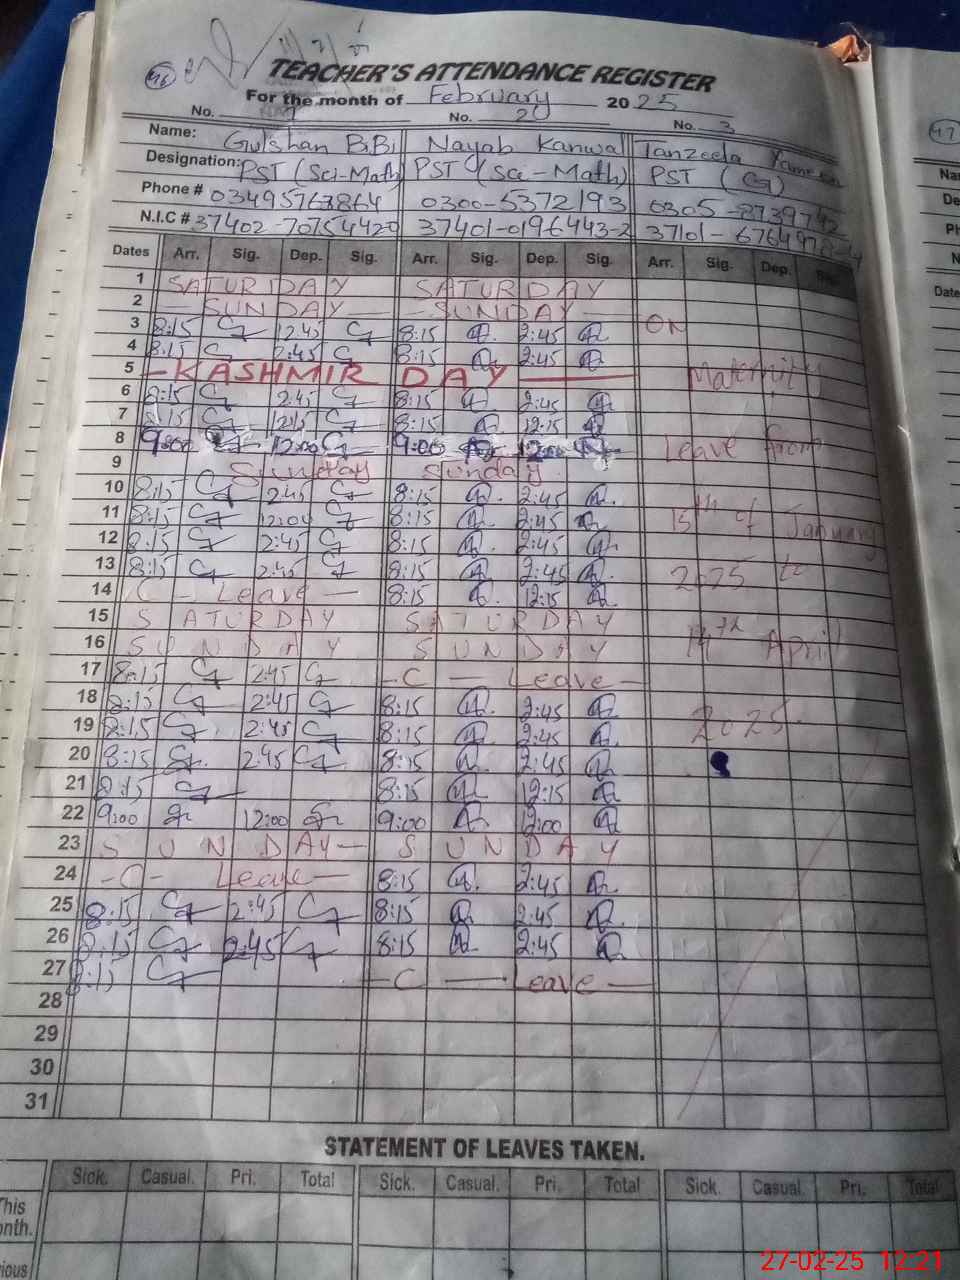 46
TEACHER'S ATTENDANCE REGISTER
For the month of February 2025
No. 1 No. 2 No. 3
Name: Gulshan BiBi Nayab Kanwal Tanzeela
Designation: PST (Sci-Math) PST (Sci-Math) PST (G)
Phone # 03495767864 0300-5372193 0305-8739742
N.I.C # 37402-70754420 37401-0196443-2 37101-
Dates Arr. Sig. Dep. Sig. Arr. Sig. Dep. Sig. Arr. Sig. Dep. Sig.
1 SATURDAY SATURDAY
2 SUNDAY SUNDAY
3 8:15 12:45 8:15 2:45 ON
4 8:15 2:45 8:15 2:45
5 -KASHMIR DAY Maternity
6 8:15 2:45 8:15 2:45
7 8:15 12:15 8:15 12:15
8 9:00 12:00 9:00 12:00 Leave from
9 Sunday Sunday
10 8:15 2:45 8:15 2:45
11 8:15 12:00 8:15 2:45 15th of January
12 8:15 2:45 8:15 2:45
13 8:15 2:45 8:15 2:45 2025 to
14 C - Leave - 8:15 12:15
15 SATURDAY SATURDAY
16 SUNDAY SUNDAY 14th April
17 8:15 2:45 -C- Leave-
18 8:15 2:45 8:15 2:45
19 8:15 2:45 8:15 2:45 2025
20 8:15 2:45 8:15 2:45
21 8:15 8:15 12:15
22 9:00 12:00 9:00 12:00
23 SUNDAY- SUNDAY
24 -C- Leave- 8:15 2:45
25 8:15 2:45 8:15 2:45
26 8:15 2:45 8:15 2:45
27 8:15 -C- Leave-
28
29
30
31
STATEMENT OF LEAVES TAKEN.
Sick. Casual. Pri. Total Sick. Casual. Pri. Total Sick. Casual. Pri. Total
This
onth.
ious
47
Na
De
Ph
N
Date
27-02-25 12:21